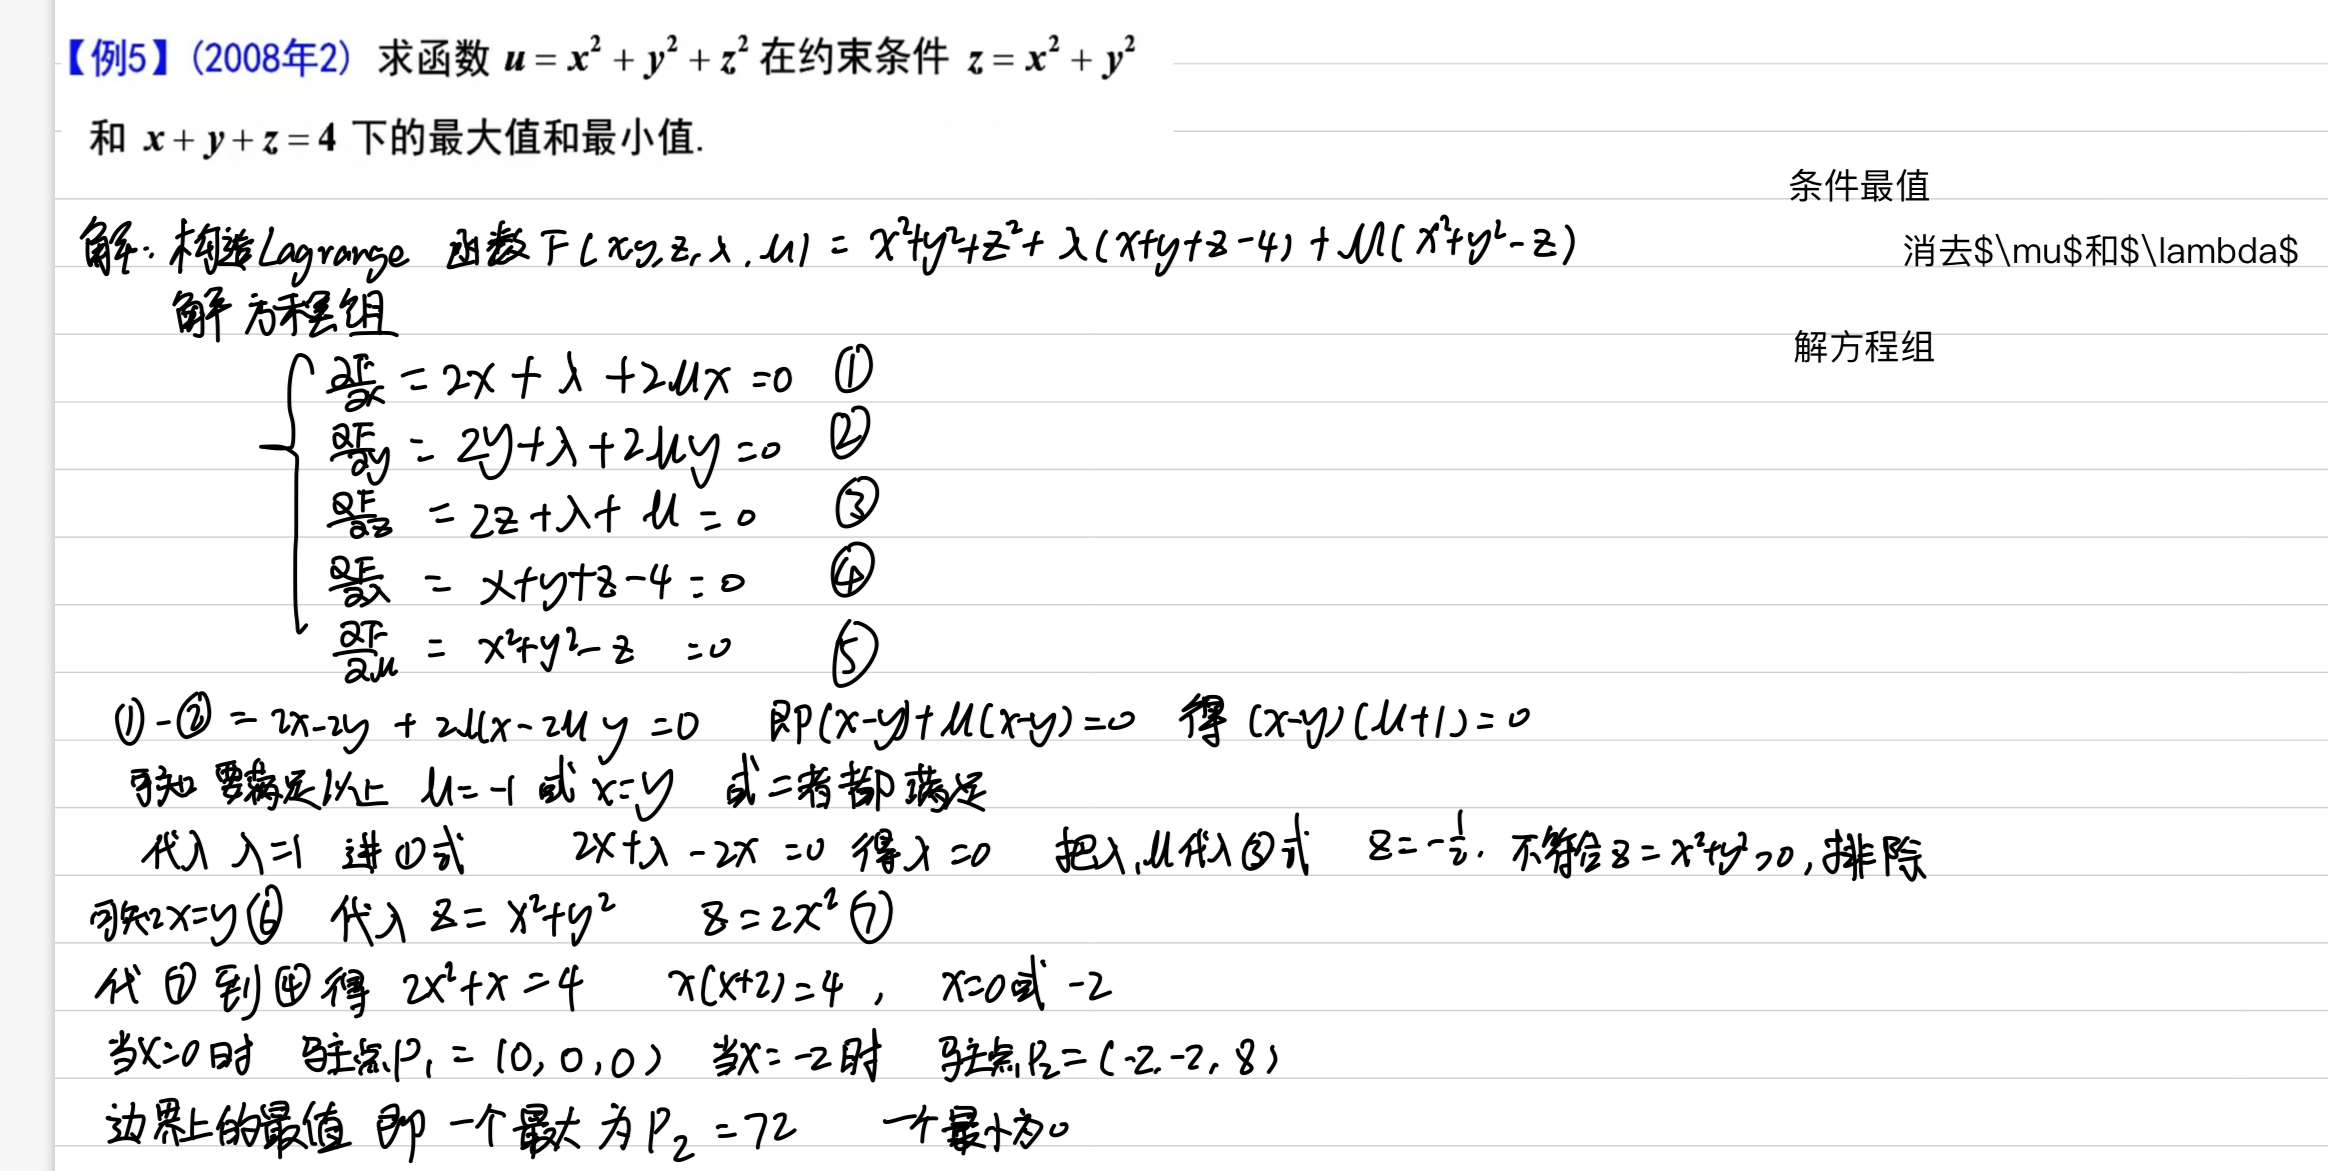 【例5】(2008年2) 求函数 u = x² + y² + z² 在约束条件 z = x² + y²
和 x + y + z = 4 下的最大值和最小值.
条件最值
解: 构造Lagrange 函数 F(x,y,z,λ,μ) = x²+y²+z²+λ(x+y+z-4)+μ(x²+y²-z)
消去$\mu$和$\lambda$
解方程组
解方程组
∂F/∂x = 2x + λ + 2μx = 0 ①
∂F/∂y = 2y + λ + 2μy = 0 ②
∂F/∂z = 2z + λ + μ = 0 ③
∂F/∂λ = x+y+z-4 = 0 ④
∂F/∂μ = x²+y²-z = 0 ⑤
①-② = 2x-2y + 2μx-2μy = 0 即(x-y)+μ(x-y)=0 得 (x-y)(μ+1)=0
可知 要满足以上 μ=-1 或 x=y 或二者都满足
代入 λ=1 进①式 2x+λ-2x=0 得λ=0 把λ,μ代入③式 z=-1/2. 不符合z=x²+y²>0,排除
可知2x=y⑥ 代入 z=x²+y² z=2x² ⑦
代⑦到④得 2x²+x=4 x(x+2)=4, x=0或-2
当x=0时 驻点P₁=(0,0,0) 当x=-2时 驻点P₂=(-2,-2,8)
边界上的最值 即 一个最大为P₂=72 一个最小为0